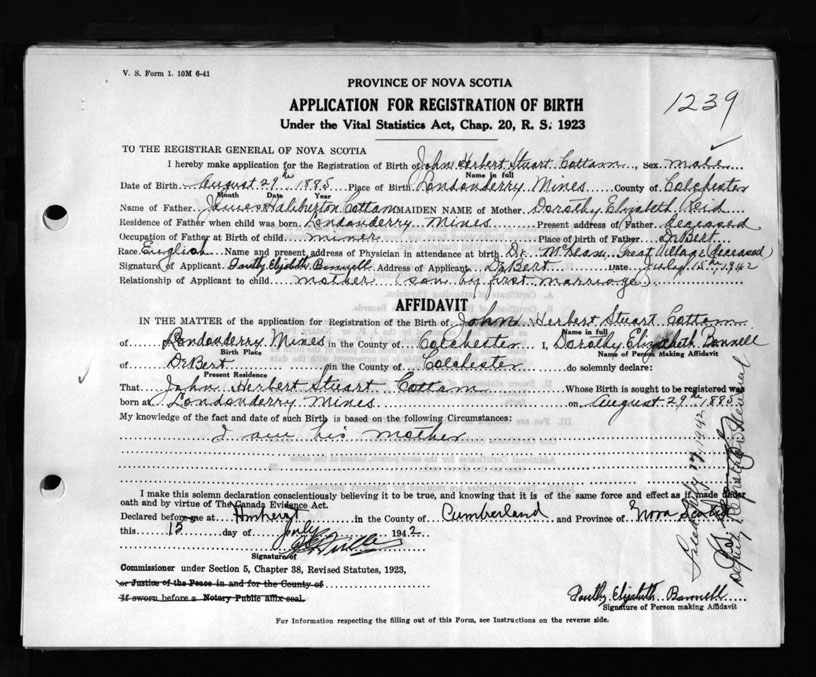 V. S. Form 1. 10M 6-41
PROVINCE OF NOVA SCOTIA
1239
APPLICATION FOR REGISTRATION OF BIRTH
Under the Vital Statistics Act, Chap. 20, R. S. 1923
TO THE REGISTRAR GENERAL OF NOVA SCOTIA
I hereby make application for the Registration of Birth of John Herbert Stuart Cottam, Sex male
Name in full
Date of Birth August 29th 1885 Place of Birth Londonderry Mines County of Colchester
Month Date Year
Name of Father James Haliburton Cottam MAIDEN NAME of Mother Dorothy Elizabeth Reid
Residence of Father when child was born Londonderry Mines Present address of Father deceased
Occupation of Father at Birth of child miner Place of birth of Father DeBert
Race English Name and present address of Physician in attendance at birth Dr. McLean, Great Village (deceased)
Signature of Applicant Elizabeth Bonnell Address of Applicant DeBert Date July 15th 1942
Relationship of Applicant to child mother (son by first marriage)
AFFIDAVIT
IN THE MATTER of the application for Registration of the Birth of John Herbert Stuart Cottam
Name in full
of Londonderry Mines in the County of Colchester I, Dorothy Elizabeth Bonnell
Birth Place Name of Person Making Affidavit
of DeBert in the County of Colchester do solemnly declare:
Present Residence
That John Herbert Stuart Cottam Whose Birth is sought to be registered was
born at Londonderry Mines on August 29th 1885
My knowledge of the fact and date of such Birth is based on the following Circumstances:
I am his mother
I make this solemn declaration conscientiously believing it to be true, and knowing that it is of the same force and effect as if made under
oath and by virtue of The Canada Evidence Act.
Declared before me at Amherst in the County of Cumberland and Province of Nova Scotia
this 15 day of July 1942
Signature of
Commissioner under Section 5, Chapter 38, Revised Statutes, 1923,
or Justice of the Peace in and for the County of
If sworn before a Notary Public affix seal.
Elizabeth Bonnell
Signature of Person making Affidavit
For Information respecting the filling out of this Form, see Instructions on the reverse side.
July 17, 1942